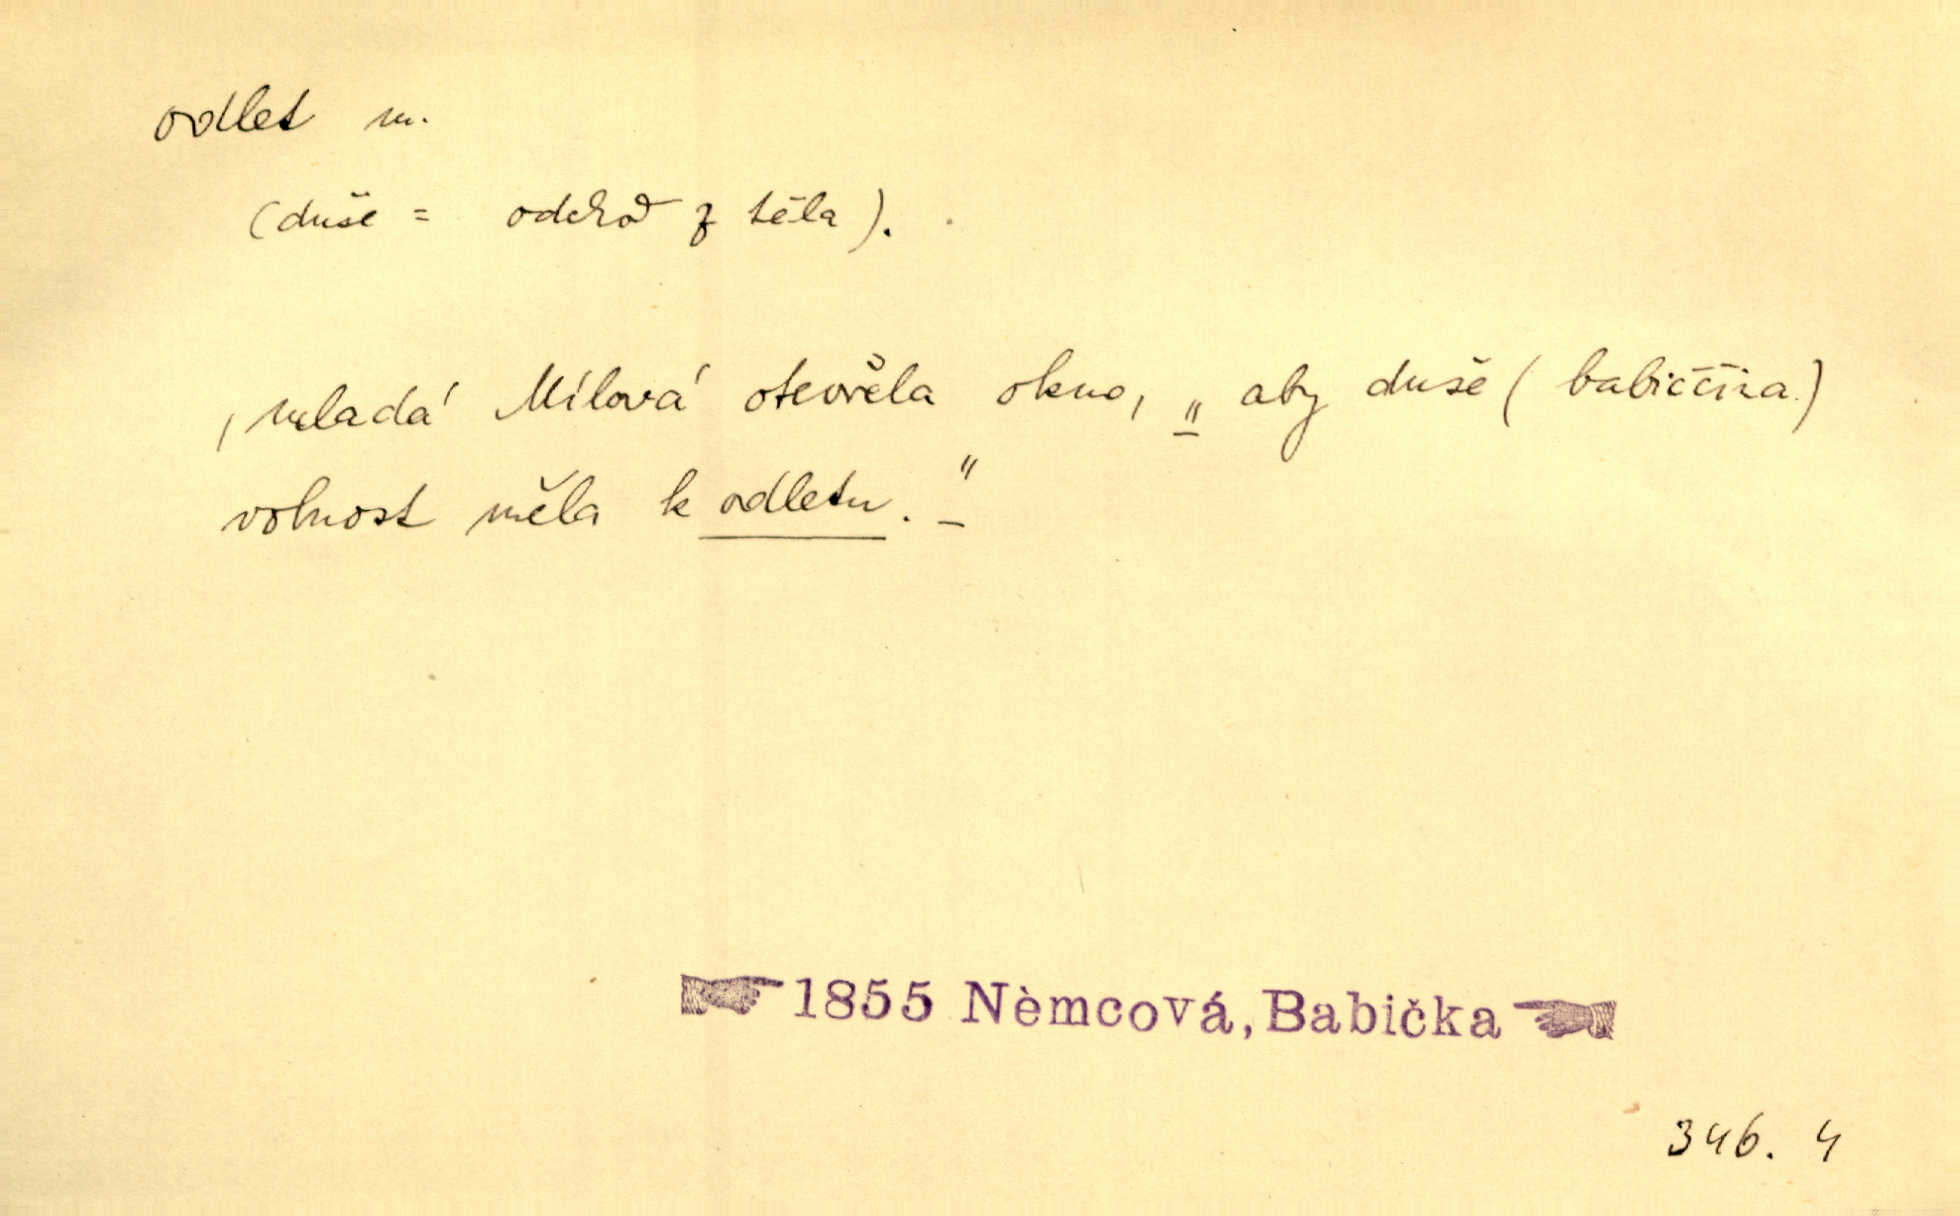 odlet m.
(duše = odchod z těla).
, mladá Mílová otevřela okno, „ aby duše ( babiččina)
volnost měla k odletu."
1855 Nèmcová, Babička
346. 4